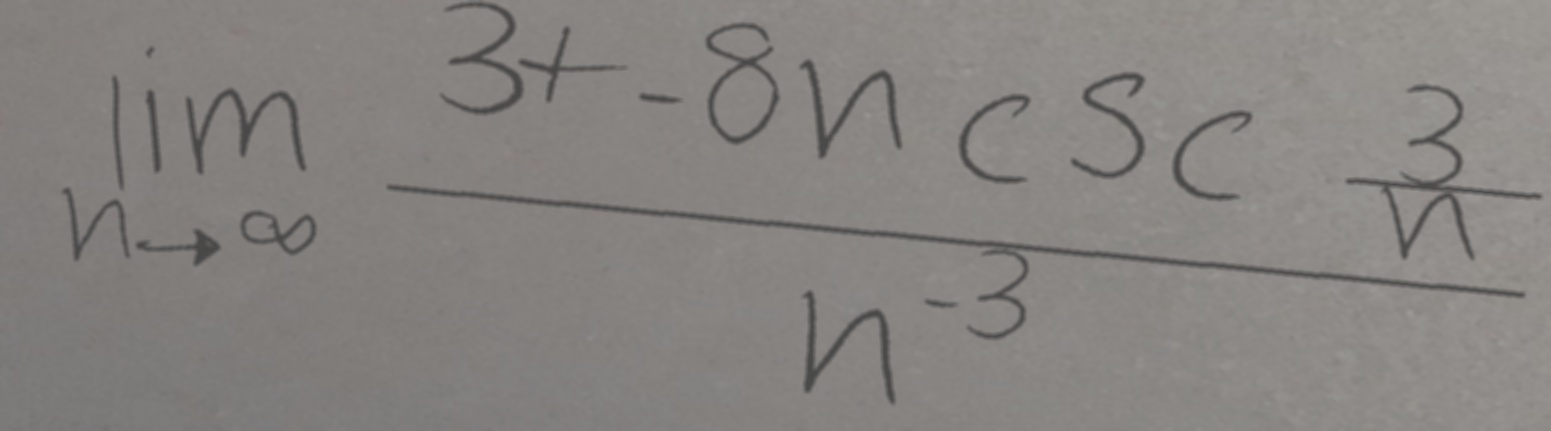 lim n→∞ (3+-8n csc 3/n) / n^-3